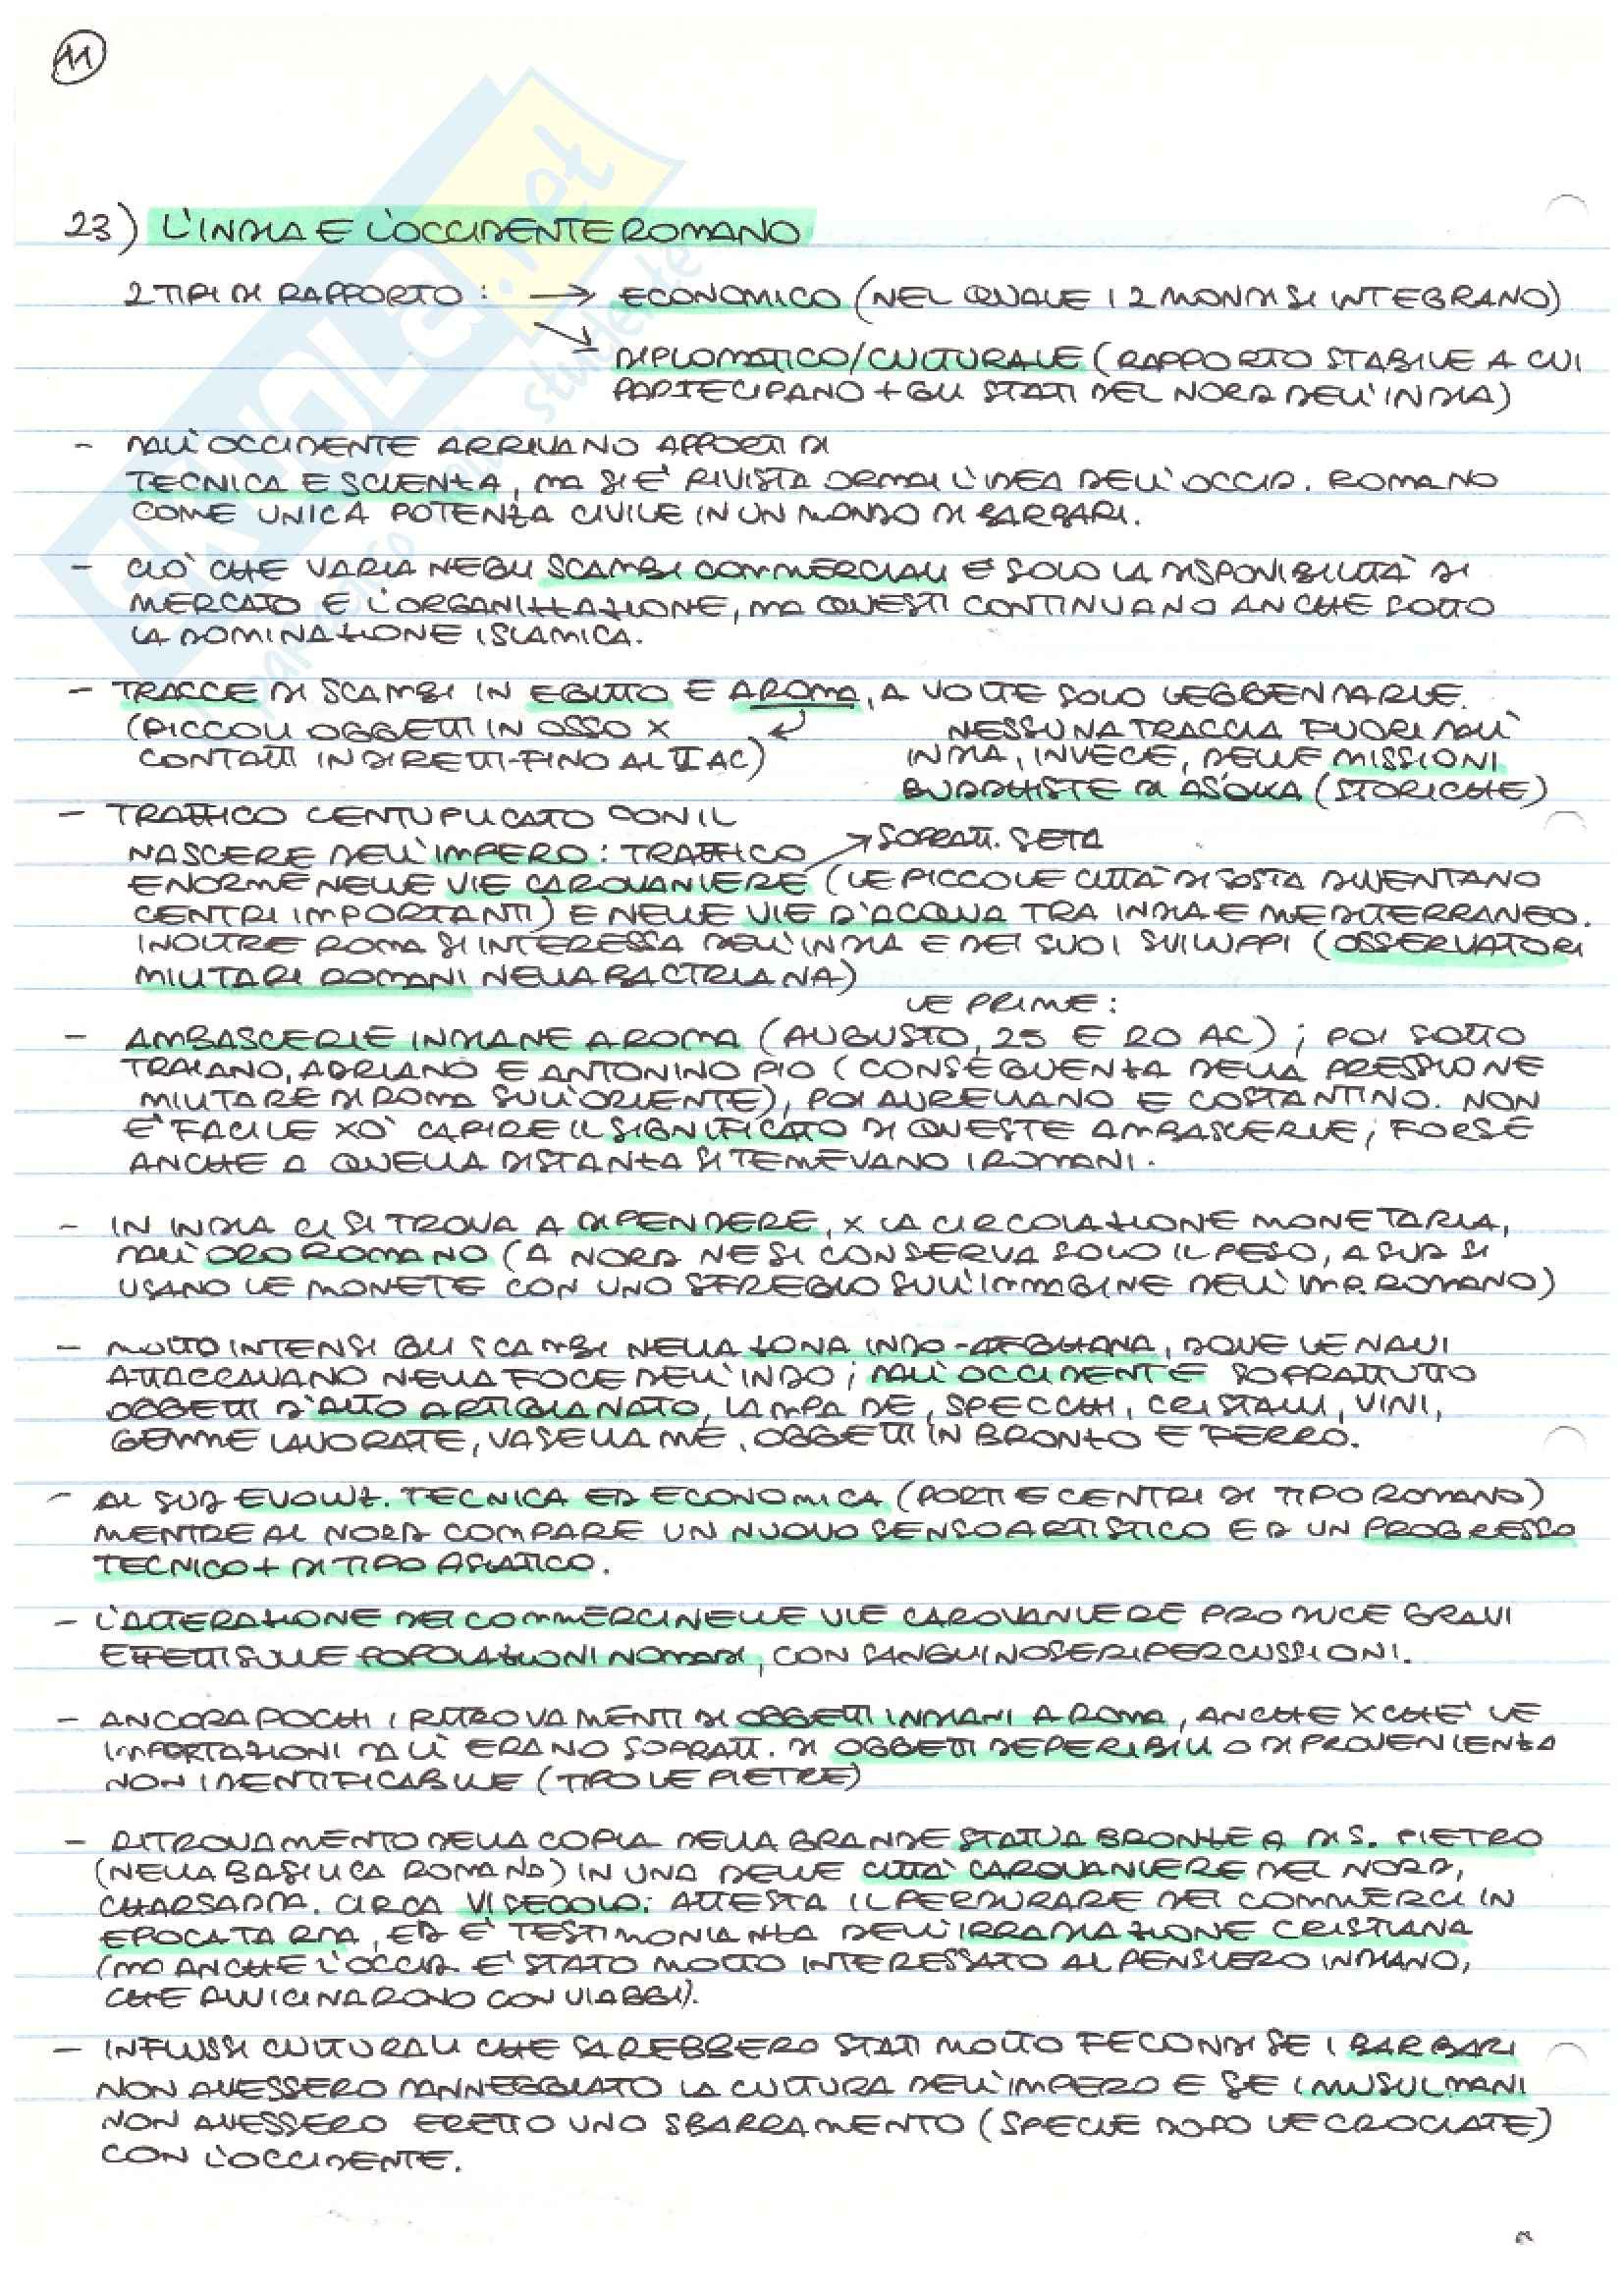 11
23) L'INDIA E L'OCCIDENTE ROMANO
2 TIPI DI RAPPORTO : → ECONOMICO (NEL QUALE I 2 MONDI SI INTEGRANO)
↘ DIPLOMATICO/CULTURALE (RAPPORTO STABILE A CUI
PARTECIPANO + GLI STATI DEL NORD DELL'INDIA)
- DALL'OCCIDENTE ARRIVANO APPORTI DI
TECNICA E SCIENZA, MA SI E' RIVISTA ORMAI L'IDEA DELL'OCCID. ROMANO
COME UNICA POTENZA CIVILE IN UN MONDO DI BARBARI.
- CIO' CHE VARIA NEGLI SCAMBI COMMERCIALI E' SOLO LA DISPONIBILITA' DI
MERCATO E L'ORGANIZZAZIONE, MA QUESTI CONTINUANO ANCHE SOTTO
LA DOMINAZIONE ISLAMICA.
- TRACCE DI SCAMBI IN EGITTO E A ROMA, A VOLTE SOLO LEGGENDARIE.
(PICCOLI OGGETTI IN OSSO X
CONTATTI INDIRETTI-FINO AL II AC)
NESSUNA TRACCIA FUORI DALL'
INDIA, INVECE, DELLE MISSIONI
BUDDHISTE DI ASOKA (STORICHE)
- TRAFFICO CENTUPLICATO CON IL
NASCERE DELL'IMPERO: TRAFFICO → SOPRATT. SETA
ENORME NELLE VIE CAROVANIERE (LE PICCOLE CITTA' DI SOSTA DIVENTANO
CENTRI IMPORTANTI) E NELLE VIE D'ACQUA TRA INDIA E MEDITERRANEO.
INOLTRE ROMA SI INTERESSA DELL'INDIA E DEI SUOI SVILUPPI (OSSERVATORI
MILITARI ROMANI NELLA BACTRIANA)
LE PRIME:
- AMBASCERIE INDIANE A ROMA (AUGUSTO, 25 E 20 AC); POI SOTTO
TRAIANO, ADRIANO E ANTONINO PIO (CONSEGUENZA DELLA PRESSIONE
MILITARE DI ROMA SULL'ORIENTE), POI AURELIANO E COSTANTINO. NON
E' FACILE XO' CAPIRE IL SIGNIFICATO DI QUESTE AMBASCERIE; FORSE
ANCHE A QUELLA DISTANZA SI TEMEVANO I ROMANI.
- IN INDIA CI SI TROVA A DIPENDERE, X LA CIRCOLAZIONE MONETARIA,
DALL'ORO ROMANO (A NORD NE SI CONSERVA SOLO IL PESO, A SUD SI
USANO LE MONETE CON UNO SFREGIO SULL'IMMAGINE DELL'IMP. ROMANO)
- MOLTO INTENSI GLI SCAMBI NELLA ZONA INDO-AFGHANA, DOVE LE NAVI
ATTACCAVANO NELLA FOCE DELL'INDO; DALL'OCCIDENTE SOPRATTUTTO
OGGETTI D'ALTO ARTIGIANATO, LAMPADE, SPECCHI, CRISTALLI, VINI,
GEMME LAVORATE, VASELLAME, OGGETTI IN BRONZO E FERRO.
- AL SUD EVOLUZ. TECNICA ED ECONOMICA (PORTI E CENTRI DI TIPO ROMANO)
MENTRE AL NORD COMPARE UN NUOVO SENSO ARTISTICO ED UN PROGRESSO
TECNICO + DI TIPO ASIATICO.
- L'ALTERAZIONE DEI COMMERCI NELLE VIE CAROVANIERE PRODUCE GRAVI
EFFETTI SULLE POPOLAZIONI NOMADI, CON SANGUINOSE RIPERCUSSIONI.
- ANCORA POCHI I RITROVAMENTI DI OGGETTI INDIANI A ROMA, ANCHE XCHE' LE
IMPORTAZIONI DA LI' ERANO SOPRATT. DI OGGETTI DEPERIBILI O DI PROVENIENZA
NON IDENTIFICABILE (TIPO LE PIETRE)
- RITROVAMENTO DELLA COPIA DELLA GRANDE STATUA BRONZEA DI S. PIETRO
(NELLA BASILICA ROMANA) IN UNA DELLE CITTA' CAROVANIERE DEL NORD,
CHARSADDA. CIRCA VI SECOLO: ATTESTA IL PERDURARE DEI COMMERCI IN
EPOCA TARDA, ED E' TESTIMONIANZA DELL'IRRADIAZIONE CRISTIANA
(MA ANCHE L'OCCID. E' STATO MOLTO INTERESSATO AL PENSIERO INDIANO,
CHE AVVICINARONO CON VIAGGI).
- INFLUSSI CULTURALI CHE SAREBBERO STATI MOLTO FECONDI SE I BARBARI
NON AVESSERO DANNEGGIATO LA CULTURA DELL'IMPERO E SE I MUSULMANI
NON AVESSERO ERETTO UNO SBARRAMENTO (SPECIE DOPO LE CROCIATE)
CON L'OCCIDENTE.